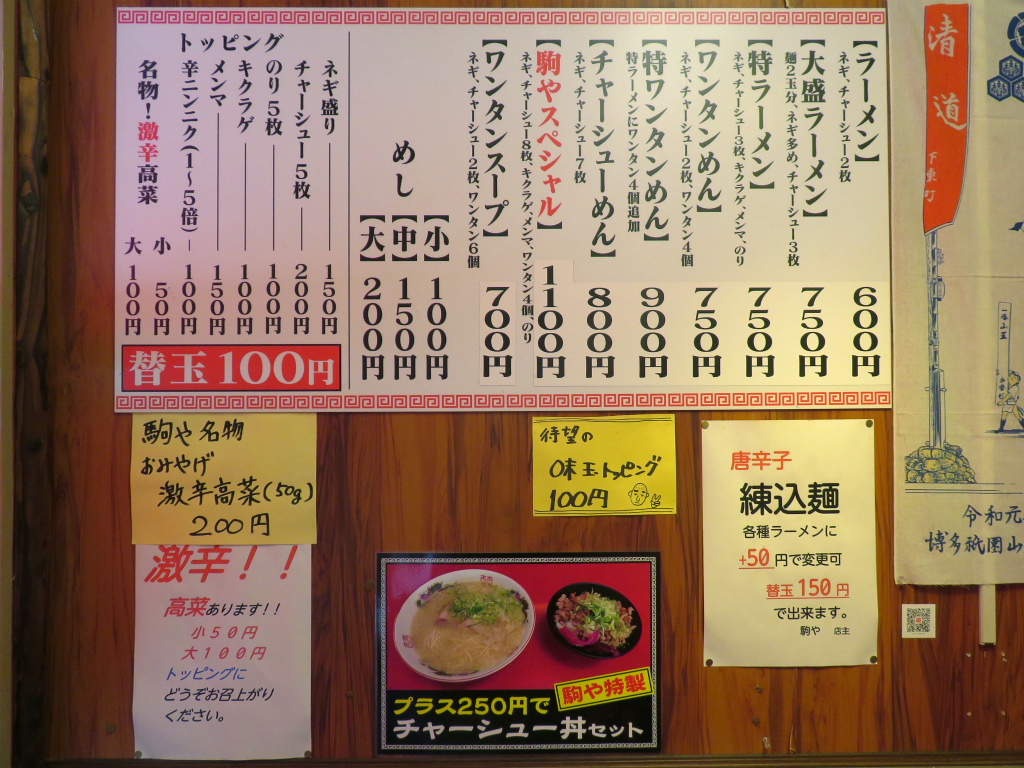 【ラーメン】 600円
ネギ、チャーシュー2枚
【大盛ラーメン】 750円
麺2玉分、ネギ多め、チャーシュー3枚
【特ラーメン】 750円
ネギ、チャーシュー3枚、キクラゲ、メンマ、のり
【ワンタンめん】 750円
ネギ、チャーシュー2枚、ワンタン4個
【特ワンタンめん】 900円
特ラーメンにワンタン4個追加
【チャーシューめん】 800円
ネギ、チャーシュー7枚
【駒やスペシャル】 1100円
ネギ、チャーシュー8枚、キクラゲ、メンマ、ワンタン4個、のり
【ワンタンスープ】 700円
ネギ、チャーシュー2枚、ワンタン6個
めし
【小】 100円
【中】 150円
【大】 200円
トッピング
ネギ盛り 150円
チャーシュー5枚 200円
のり5枚 100円
キクラゲ 100円
メンマ 150円
辛ニンニク(1〜5倍) 100円
名物!激辛高菜
小 50円
大 100円
替玉 100円
駒や名物
おみやげ
激辛高菜(50g)
200円
激辛!!
高菜あります!!
小50円
大100円
トッピングに
どうぞお召上がり
ください。
待望の
味玉トッピング
100円
プラス250円で
駒や特製
チャーシュー丼セット
唐辛子
練込麺
各種ラーメンに
+50円で変更可
替玉150円
で出来ます。
駒や 店主
清道
下東町
令和元
博多祇園山